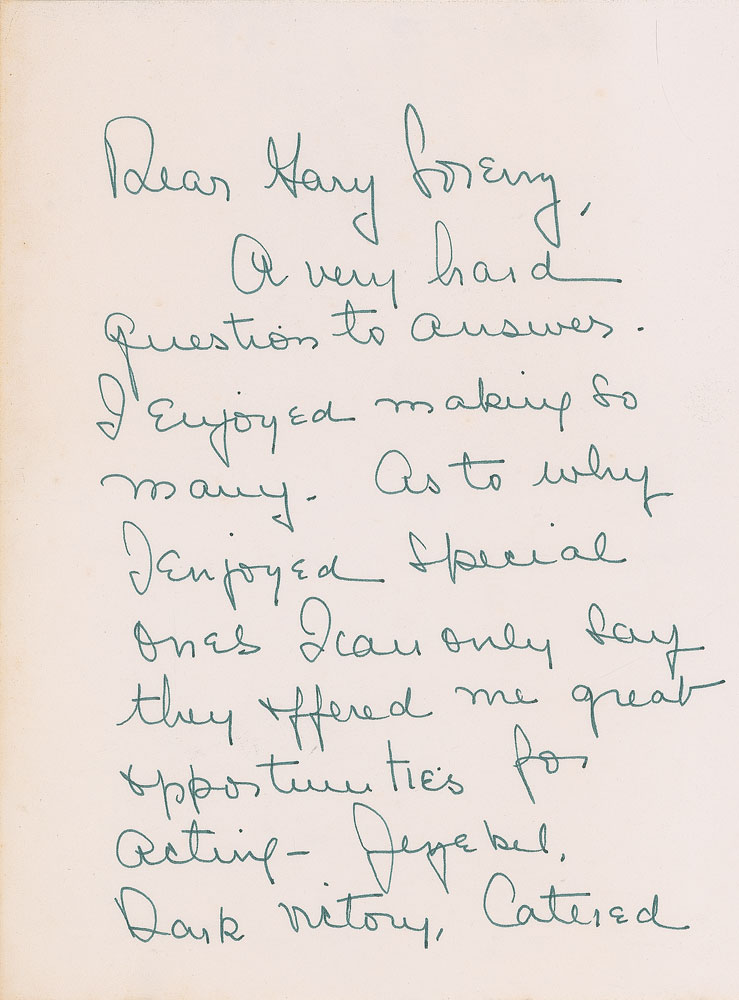 Dear Gary
A very hard
question to answer.
I enjoyed making so
many. As to why
I enjoyed special
ones I can only say
they offered me great
opportunities for
acting – Jezebel,
Dark Victory, Catered